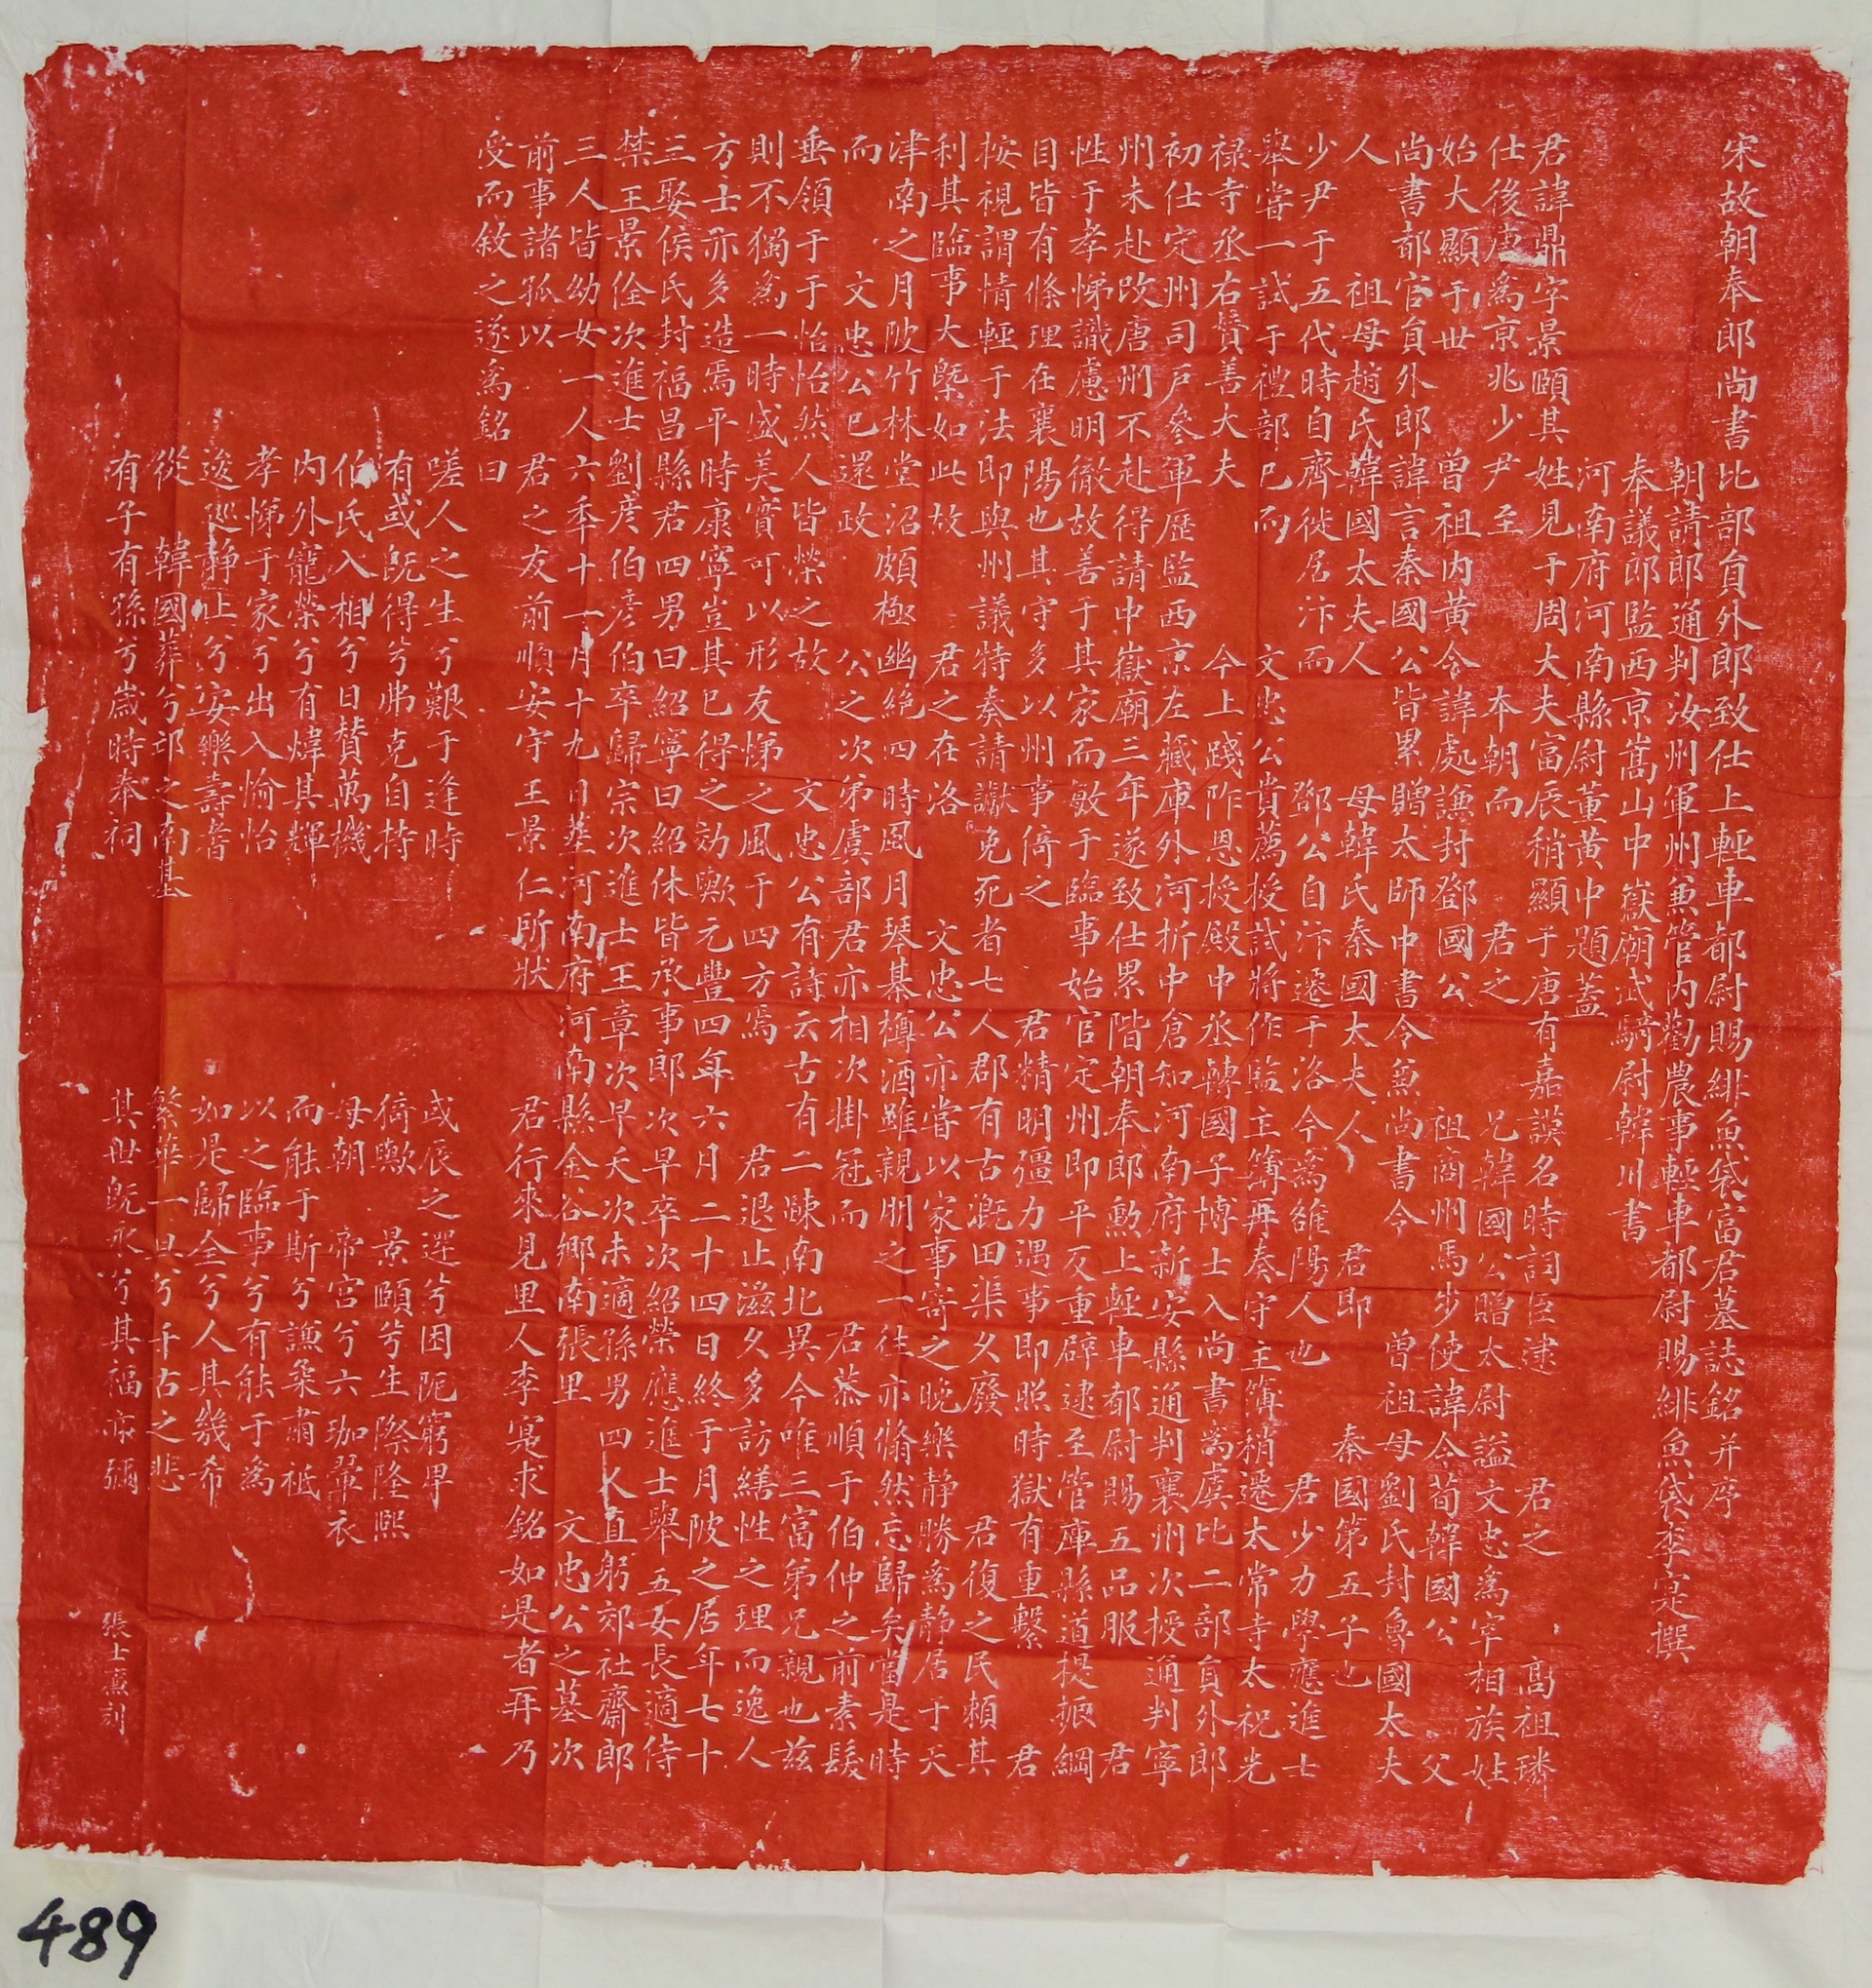 宋故朝奉郎尚書比部員外郎致仕上輕車都尉賜緋魚袋富君墓誌銘并序
朝請郎通判汝州軍州兼管內勸農事輕車都尉賜緋魚袋李寔撰
奉議郎監西京嵩山中嶽廟武騎尉韓川書
河南府河南縣尉董黃中題蓋
君諱鼎字景頤其姓見于周大夫富辰稍顯于唐有嘉謨名時詞臣逮 君之 高祖璘
仕後唐為京兆少尹至 本朝而 君之 兄韓國公贈太尉謚文忠為宰相族姓
始大顯于世 曾祖內黃令諱處謙封鄧國公 祖商州馬步使諱令荀韓國公 父
尚書都官員外郎諱言秦國公皆累贈太師中書令兼尚書令 曾祖母劉氏封魯國太夫
人 祖母趙氏韓國太夫人 母韓氏秦國太夫人 君即 秦國第五子也
少尹于五代時自齊徙居汴而 鄧公自汴遷于洛今為雒陽人也 君少力學應進士
舉嘗一試于禮部已而 文忠公貴薦授試將作監主簿再奏守主簿稍遷太常寺太祝光
祿寺丞右贊善大夫 今上踐阼恩授殿中丞轉國子博士入尚書為虞比二部員外郎
初仕定州司戶參軍歷監西京左藏庫外河折中倉知河南府新安縣通判襄州次授通判寧
州未赴改唐州不赴得請中嶽廟三年遂致仕累階朝奉郎勳上輕車都尉賜五品服 君
性于孝悌識慮明徹故善于其家而敏于臨事始官定州即平反重辟逮至管庫縣道提振綱
目皆有條理在襄陽也其守多以州事倚之 君精明彊力遇事即照時獄有重繫 君
按視謂情輕于法即與州議特奏請讞免死者七人郡有古溉田渠久廢 君復之民賴其
利其臨事大槩如此故 君之在洛 文忠公亦嘗以家事寄之晚樂靜勝為靜居于天
津南之月陂竹林堂沼頗極幽絕四時風月琴棊樽酒雖親朋之一往亦翛然忘歸矣當是時
而 文忠公已還政 公之次弟虞部君亦相次掛冠而 君恭順于伯仲之前素髮
垂領于于怡怡然人皆榮之故 文忠公有詩云古有二踈南北異今唯三富弟兄親也茲
則不獨為一時盛美實可以形友悌之風于四方焉 君退止滋久多訪繕性之理而逸人
方士亦多造焉平時康寧豈其已得之効歟元豐四年六月二十四日終于月陂之居年七十
三娶侯氏封福昌縣君四男曰紹寧曰紹休皆承事郎次早卒次紹榮應進士舉五女長適侍
禁王景佺次進士劉彥伯彥伯卒歸宗次進士王章次早夭次未適孫男四人直躬郊社齋郎
三人皆幼女一人六年十一月十九日葬河南府河南縣金谷鄉南張里 文忠公之墓次
前事諸孤以 君之友前順安守王景仁所狀 君行來見里人李寔求銘如是者再乃
受而敘之遂為銘曰
嗟人之生兮艱于逢時 或辰之遲兮困阨窮卑
有或既得兮弗克自持 猗歟 景頤兮生際隆熙
伯氏入相兮日贊萬機 母朝 帝宮兮六珈翬衣
內外寵榮兮有煒其輝 而能于斯兮謙粲肅祗
孝悌于家兮出入愉怡 以之臨事兮有能于為
逡巡靜止兮安樂壽耆 如是歸全兮人其幾希
從 韓國葬兮邙之南基 繁華一具兮千古之悲
有子有孫兮歲時奉祠 其世既永兮其福亦彌
張士廉刻
489